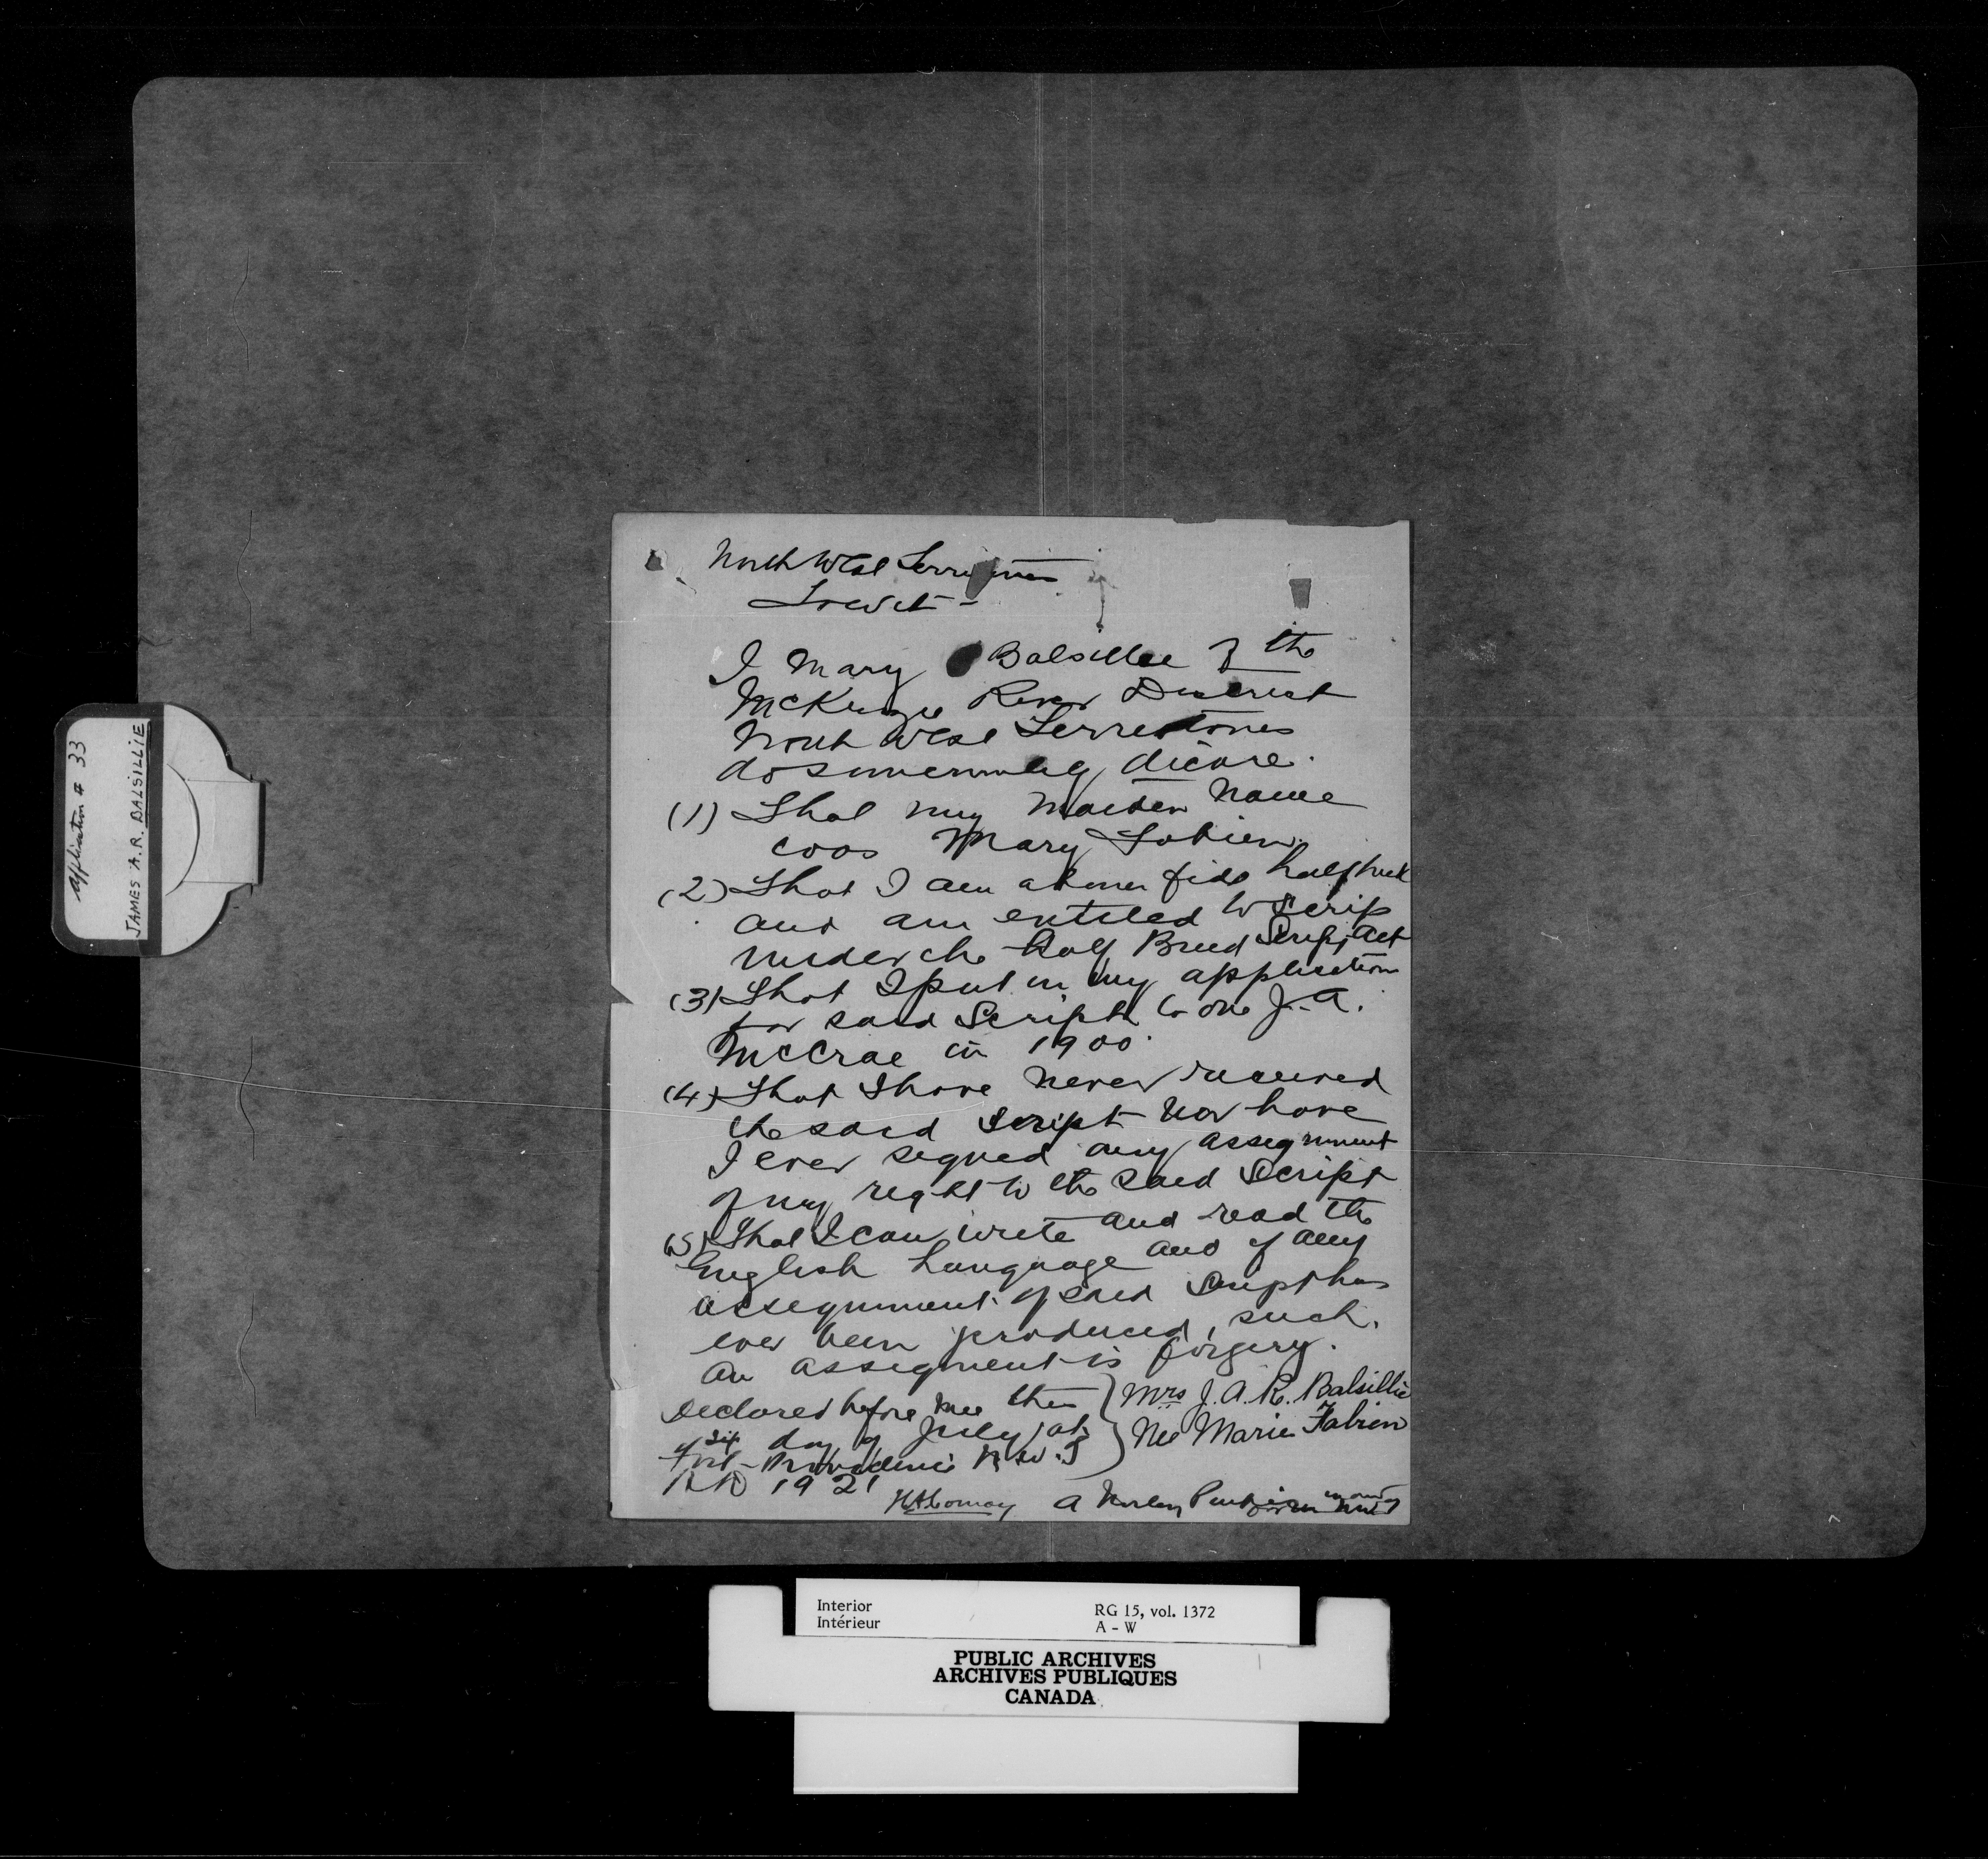 Application # 33
JAMES A.R. BALSILLIE
North West Territories
To wit -
I Mary Balsillee of the
McKenzie River District
North West Territories
do solemnly declare.
(1) That my maiden name
was Mary Fabien.
(2) That I am a bona fide half breed
and am entitled to Scrip
under the Half Breed Script Act
(3) That I put in my application
for said Script to one J. A.
McCrae in 1900.
(4) That I have never received
the said Script nor have
I ever signed any assegnment
of my right to the said Script
(5) That I can write and read the
English Language and if any
assegnment of said Script has
ever been produced, such
an assegment is forgery.
Declared before me this
day of July at
Fort Providence N.W.T
AD 1921
Mrs J. A. R. Balsillie
Neé Marie Fabien
A Notary Public in and for NWT
Interior
Intérieur
RG 15, vol. 1372
A - W
PUBLIC ARCHIVES
ARCHIVES PUBLIQUES
CANADA